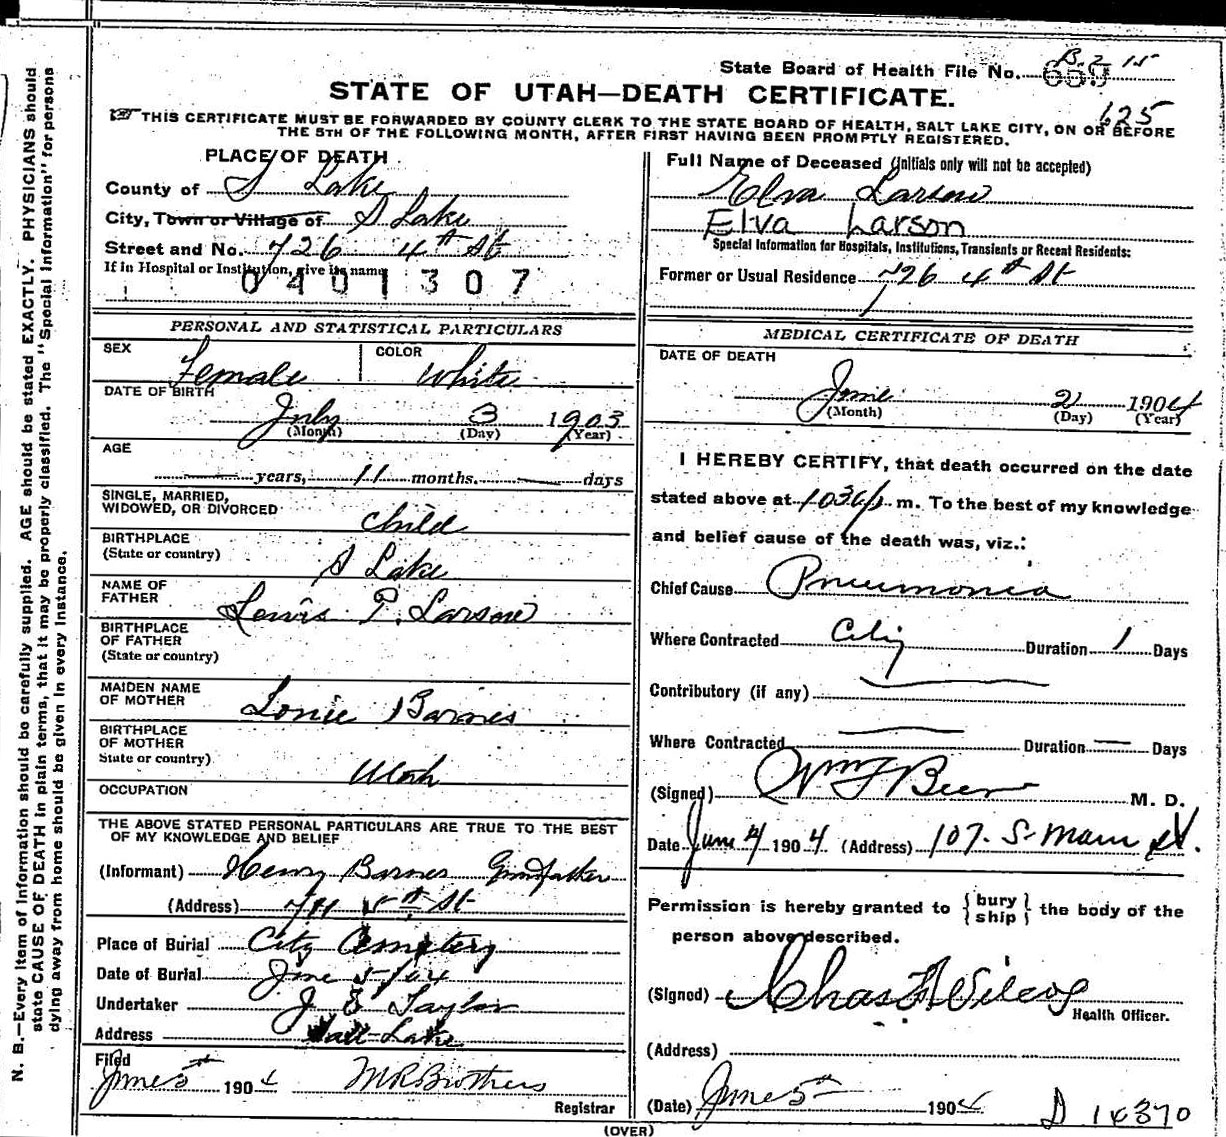 State Board of Health File No. 659
B. 2 15
625
STATE OF UTAH—DEATH CERTIFICATE.
THIS CERTIFICATE MUST BE FORWARDED BY COUNTY CLERK TO THE STATE BOARD OF HEALTH, SALT LAKE CITY, ON OR BEFORE
THE 5TH OF THE FOLLOWING MONTH, AFTER FIRST HAVING BEEN PROMPTLY REGISTERED.
PLACE OF DEATH
County of S Lake
City, Town or Village of S Lake
Street and No. 726 4th St
If in Hospital or Institution, give its name
0401307
Full Name of Deceased (Initials only will not be accepted)
Elva Larson
Elva Larson
Special Information for Hospitals, Institutions, Transients or Recent Residents:
Former or Usual Residence 726 4th St
PERSONAL AND STATISTICAL PARTICULARS
SEX Female COLOR White
DATE OF BIRTH
July 3 1903
(Month) (Day) (Year)
AGE
years, 11 months. days
SINGLE, MARRIED,
WIDOWED, OR DIVORCED child
BIRTHPLACE
(State or country) S Lake
NAME OF
FATHER Lewis P. Larson
BIRTHPLACE
OF FATHER
(State or country)
MAIDEN NAME
OF MOTHER Lonie Barnes
BIRTHPLACE
OF MOTHER
State or country) Utah
OCCUPATION
THE ABOVE STATED PERSONAL PARTICULARS ARE TRUE TO THE BEST
OF MY KNOWLEDGE AND BELIEF
(Informant) Henry Barnes Grandfather
(Address) 5th St
Place of Burial City Cemetery
Date of Burial June 5/04
Undertaker J E Taylor
Address Salt Lake
Filed
June 5th 1904 M R Brothers
Registrar
MEDICAL CERTIFICATE OF DEATH
DATE OF DEATH
June 2 1904
(Month) (Day) (Year)
I HEREBY CERTIFY, that death occurred on the date
stated above at 1030 p m. To the best of my knowledge
and belief cause of the death was, viz.:
Chief Cause Pneumonia
Where Contracted City Duration 1 Days
Contributory (if any)
Where Contracted Duration Days
(Signed) Wm F Beer M. D.
Date June 4 1904 (Address) 107. S. Main St.
Permission is hereby granted to {bury ship} the body of the
person above described.
(Signed) Chas F Wilcox
Health Officer.
(Address)
(Date) June 5th 1904
D 14370
(OVER)
N. B.—Every item of information should be carefully supplied. AGE should be stated EXACTLY. PHYSICIANS should
state CAUSE OF DEATH in plain terms, that it may be properly classified. The "Special Information" for persons
dying away from home should be given in every instance.